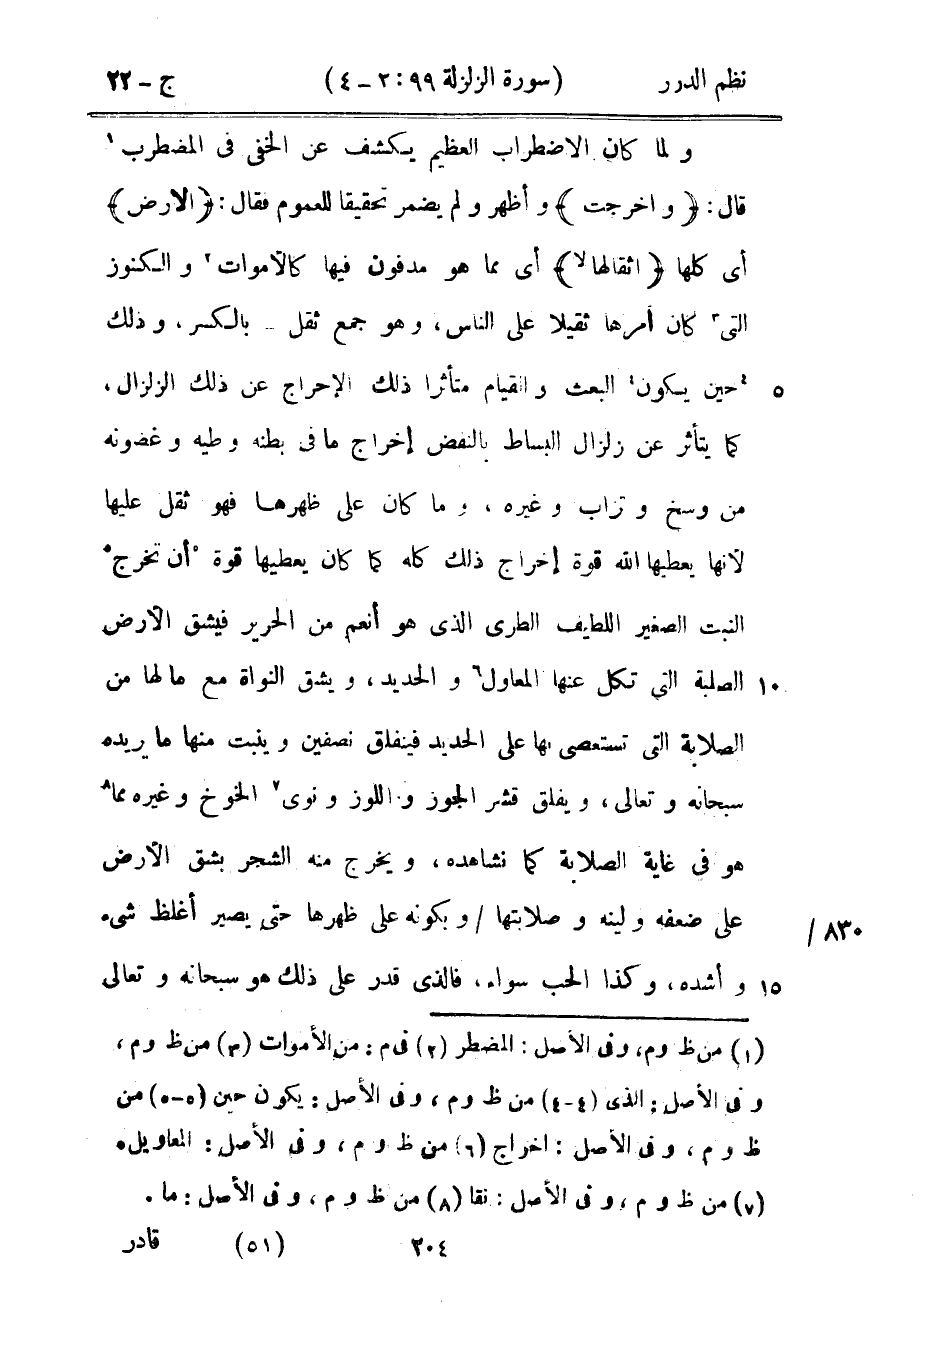 نظم الدرر (سورة الزلزلة ٩٩ : ٢ – ٤) ج – ٢٢
و لما كان الاضطراب العظيم يكشف عن الخفى فى المضطرب ١
قال : ﴿ و اخرجت ﴾ و أظهر و لم يضمر تحقيقا للعموم فقال : ﴿ الارض ﴾
أى كلها ﴿ اثقالها لا ﴾ أى مما هو مدفون فيها كالأموات ٢ و الكنوز
التى ٣ كان أمرها ثقيلا على الناس ، و هو جمع ثقل – بالكسر ، و ذلك
٥ ٤حين يكون٤ البعث و القيام متأثرا ذلك الإحراج عن ذلك الزلزال ،
كما يتأثر عن زلزال البساط بالنفض إخراج ما فى بطنه و طيه و غضونه
من وسخ و تراب و غيره ، و ما كان على ظهرها فهو ثقل عليها
لأنها يعطيها الله قوة إخراج ذلك كله كما كان يعطيها قوة ٥أن تخرج٥
النبت الصغير اللطيف الطرى الذى هو أنعم من الحرير فيشق الأرض
١٠ الصلبة التي تكل عنها المعاول٦ و الحديد ، و يشق النواة مع ما لها من
الصلابة التى تستعصى بها على الحديد فينفلق نصفين و ينبت منها ما يريده
سبحانه و تعالى ، و يفلق قشر الجوز و اللوز و نوى ٧ الخوخ و غيره مما٨
هو فى غاية الصلابة كما نشاهده ، و يخرج منه الشجر بشق الأرض
على ضعفه و لينه و صلابتها / و بكونه على ظهرها حتى يصير أغلظ شىء ٨٣٠ /
١٥ و أشده ، و كذا الحب سواء ، فالذى قدر على ذلك هو سبحانه و تعالى
(١) من ظ و م ، و فى الأصل : المضطر (٢) فى م : من الأموات (٣) من ظ و م ،
و فى الأصل : الذى (٤-٤) من ظ و م ، و فى الأصل : يكون حين (٥-٥) من
ظ و م ، و فى الأصل : اخراج (٦) من ظ و م ، و فى الأصل : المعاويل .
(٧) من ظ و م ، و فى الأصل : نقا (٨) من ظ و م ، و فى الأصل : ما .
٢٠٤ (٥١) قادر